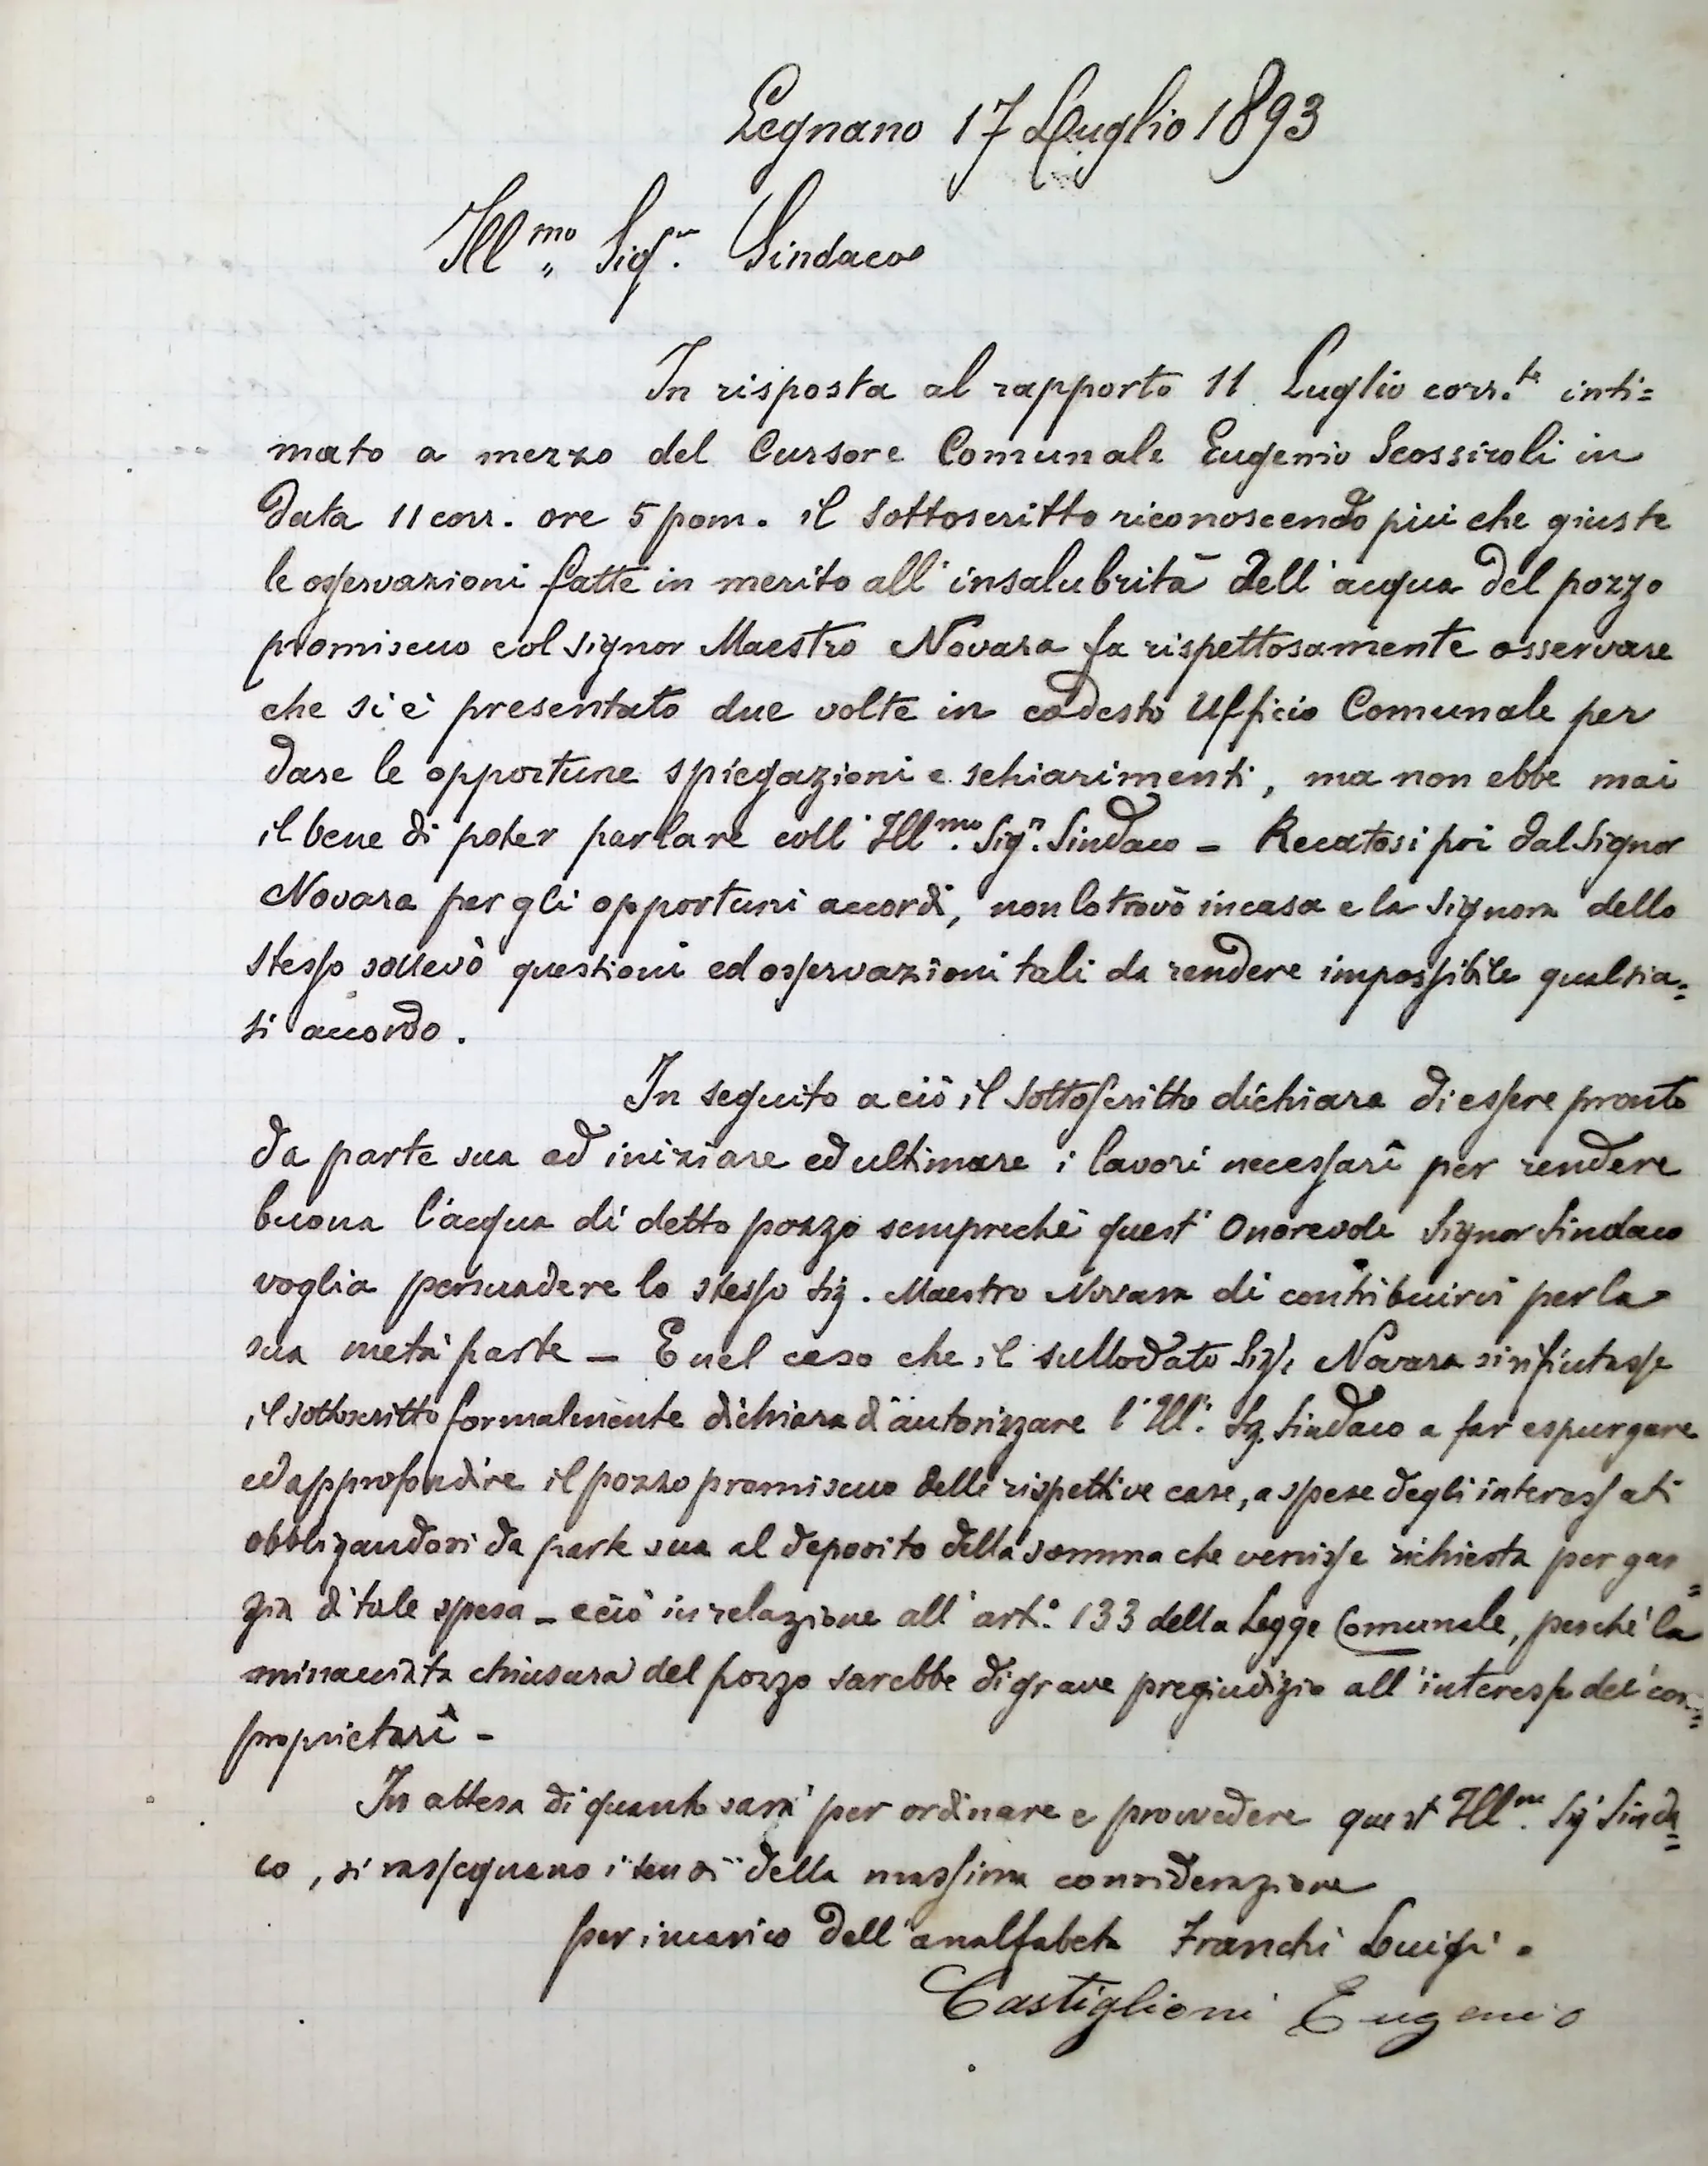 Legnano 17 Luglio 1893
Ill.mo Sigr. Sindaco
In risposta al rapporto 11 Luglio corr.te inti=
mato a mezzo del Cursore Comunale Eugenio Scossiroli in
data 11 corr. ore 5 pom. il sottoscritto riconoscendo più che giuste
le osservazioni fatte in merito all'insalubrità dell'acqua del pozzo
promiscuo col signor Maestro Novara fa rispettosamente osservare
che si è presentato due volte in codesto Ufficio Comunale per
dare le opportune spiegazioni e schiarimenti, ma non ebbe mai
il bene di poter parlare coll'Ill.mo Sig.r Sindaco - Recatosi poi dal Signor
Novara per gli opportuni accordi, non lo trovò in casa e la Signora dello
stesso sollevò questioni ed osservazioni tali da rendere impossibile qualsia=
si accordo.
In seguito a ciò il sottoscritto dichiara di essere pronto
da parte sua ad iniziare ed ultimare i lavori necessarî per rendere
buona l'acqua di detto pozzo sempreché quest'Onorevole Signor Sindaco
voglia persuadere lo stesso Sig. Maestro Novara di contribuirvi per la
sua metà parte - E nel caso che il sullodato Sigr. Novara si rifiutasse
il sottoscritto formalmente dichiara d'autorizzare l'Ill. Sig. Sindaco a far espurgare
ed approfondire il pozzo promiscuo delle rispettive case, a spese degli interessati
obbligandosi da parte sua al deposito della somma che venisse richiesta per gar=
zia di tale spesa - e ciò in relazione all'art.° 133 della Legge Comunale, perché la
minacciata chiusura del pozzo sarebbe di grave pregiudizio all'interesse dei com=
proprietarî -
In attesa di quanto sarà per ordinare e provvedere quest'Ill.mo Sig. Sinda=
co, si rassegnano i sensi della massima considerazione
per incarico dell'analfabeta Franchi Luigi.
Castiglioni Eugenio